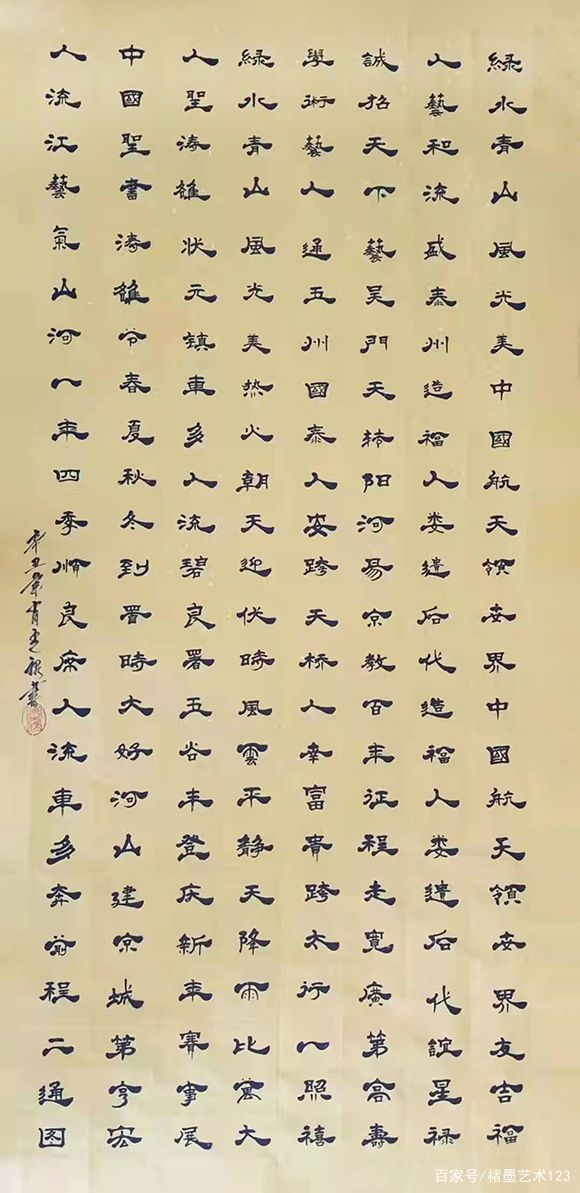 綠水青山風光美中國航天領世界中國航天領世界友吉福
人藝和流盛泰州造福人娄遺后代造福人娄遺后代誼星禄
誠招天下藝吴門天 阳河易京教百年征程走寬廣第高壽
學術藝人通五州國泰人安跨天桥人幸富貴跨太行八照禧
綠水青山風光美热火朝天迎伏時風雲平静天降雨比萬大
人聖涛雄状元镇車多人流碧良署五谷丰登庆新年賽事展
中國聖書涛雄爷春夏秋冬到署時大好河山建京城第亨宏
人流江藝氣山河八年四季順良席人流車多奔前程二通图
辛丑年肖 書
百家号/楮墨艺术123